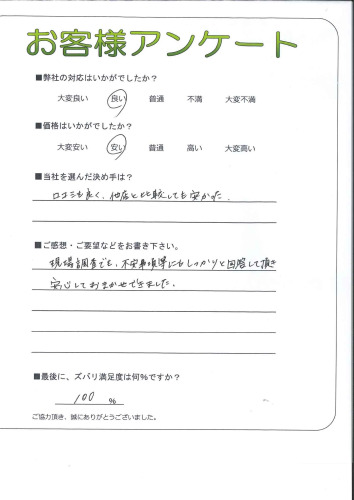 お客様アンケート
■弊社の対応はいかがでしたか?
大変良い 良い 普通 不満 大変不満
■価格はいかがでしたか?
大変安い 安い 普通 高い 大変高い
■当社を選んだ決め手は?
口コミも良く、他店と比較しても安かった.
■ご感想・ご要望などをお書き下さい。
現場調査でも、不安事項等にもしっかりと回答して頂き
安心してお任せできました.
■最後に、ズバリ満足度は何%ですか?
100 %
ご協力頂き、誠にありがとうございました。